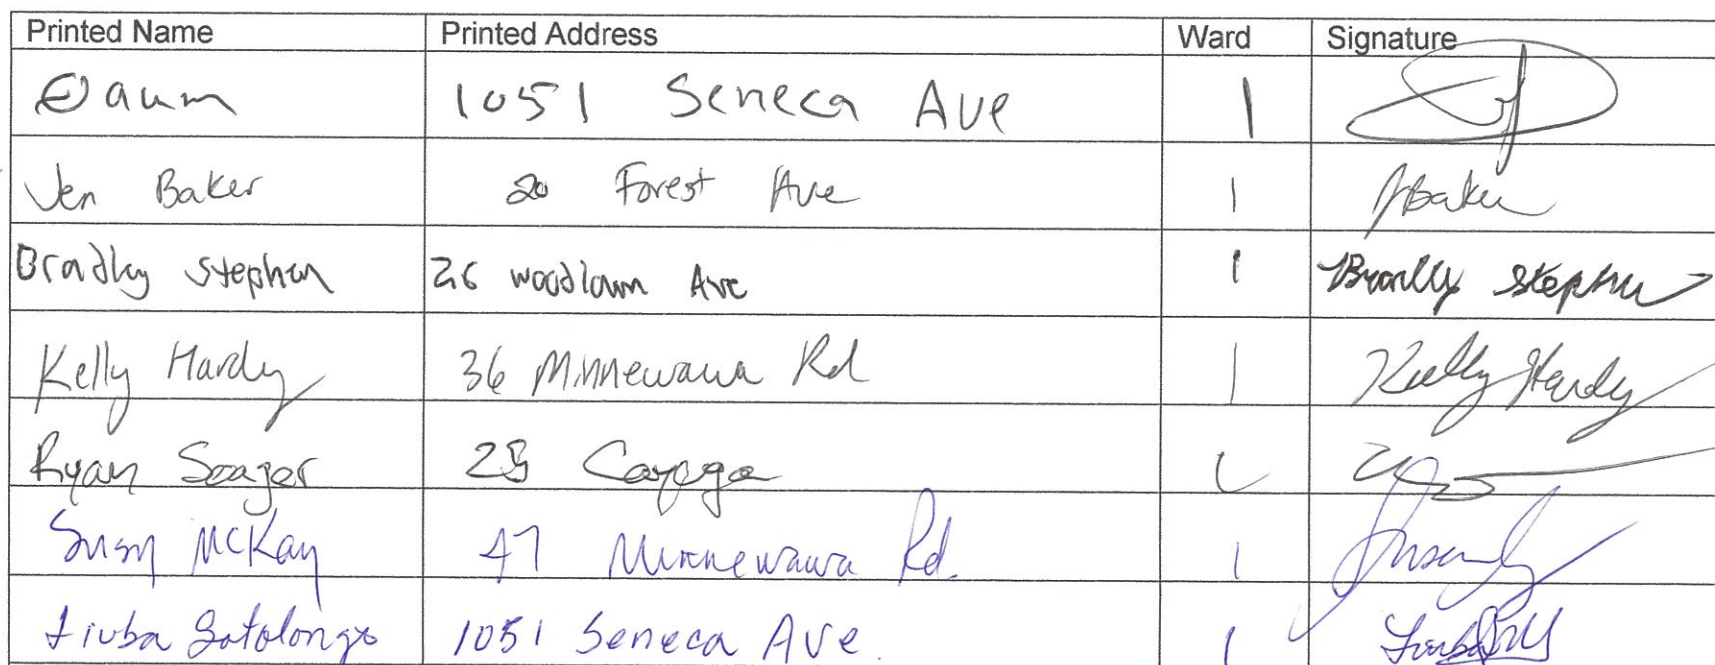 Printed Name Printed Address Ward Signature
Daum 1051 Seneca Ave 1
Jen Baker 20 Forest Ave 1 JBaker
Bradley Stephen 26 woodlawn Ave 1 Bradley Stephen
Kelly Hardy 36 Minnewawa Rd 1 Kelly Hardy
Ryan Seager 25 Cayuga
Susan McKay 47 Minnewawa Rd. 1
Liuba Sotolongo 1051 Seneca Ave 1 Liuba